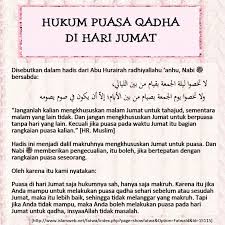 HUKUM PUASA QADHA
DI HARI JUMAT
Disebutkan dalam hadis dari Abu Hurairah radhiyallahu 'anhu, Nabi ﷺ
bersabda:
لا تخصوا ليلة الجمعة بقيام من بين الليالي،
ولا تخصوا يوم الجمعة بصيام من بين الأيام؛ إلا أن يكون في صوم يصومه
"Janganlah kalian mengkhususkan malam Jumat untuk tahajud, sementara
malam yang lain tidak. Dan jangan mengkhususkan Jumat untuk berpuasa
tanpa hari yang lain. Kecuali jika puasa pada waktu Jumat itu bagian
rangkaian puasa kalian." [HR. Muslim]
Hadis ini menjadi dalil makruhnya mengkhususkan puasa Jumat. Dan
Nabi ﷺ memberikan pengecualian, itu boleh, jika bertepatan dengan
rangkaian puasa seseorang.
Oleh karena itu kami nyatakan:
Puasa di hari Jumat saja hukumnya sah, hanya saja makruh. Karena itu jika
Anda mampu untuk melakukan puasa qadha sehari sebelum atau sesudah
Jumat, maka itu lebih baik, sehingga tidak melanggar yang makruh. Tapi
jika Anda tidak mampu, maka Anda boleh melakukan puasa pada hari
Jumat untuk qadha, insyaaAllah tidak masalah.